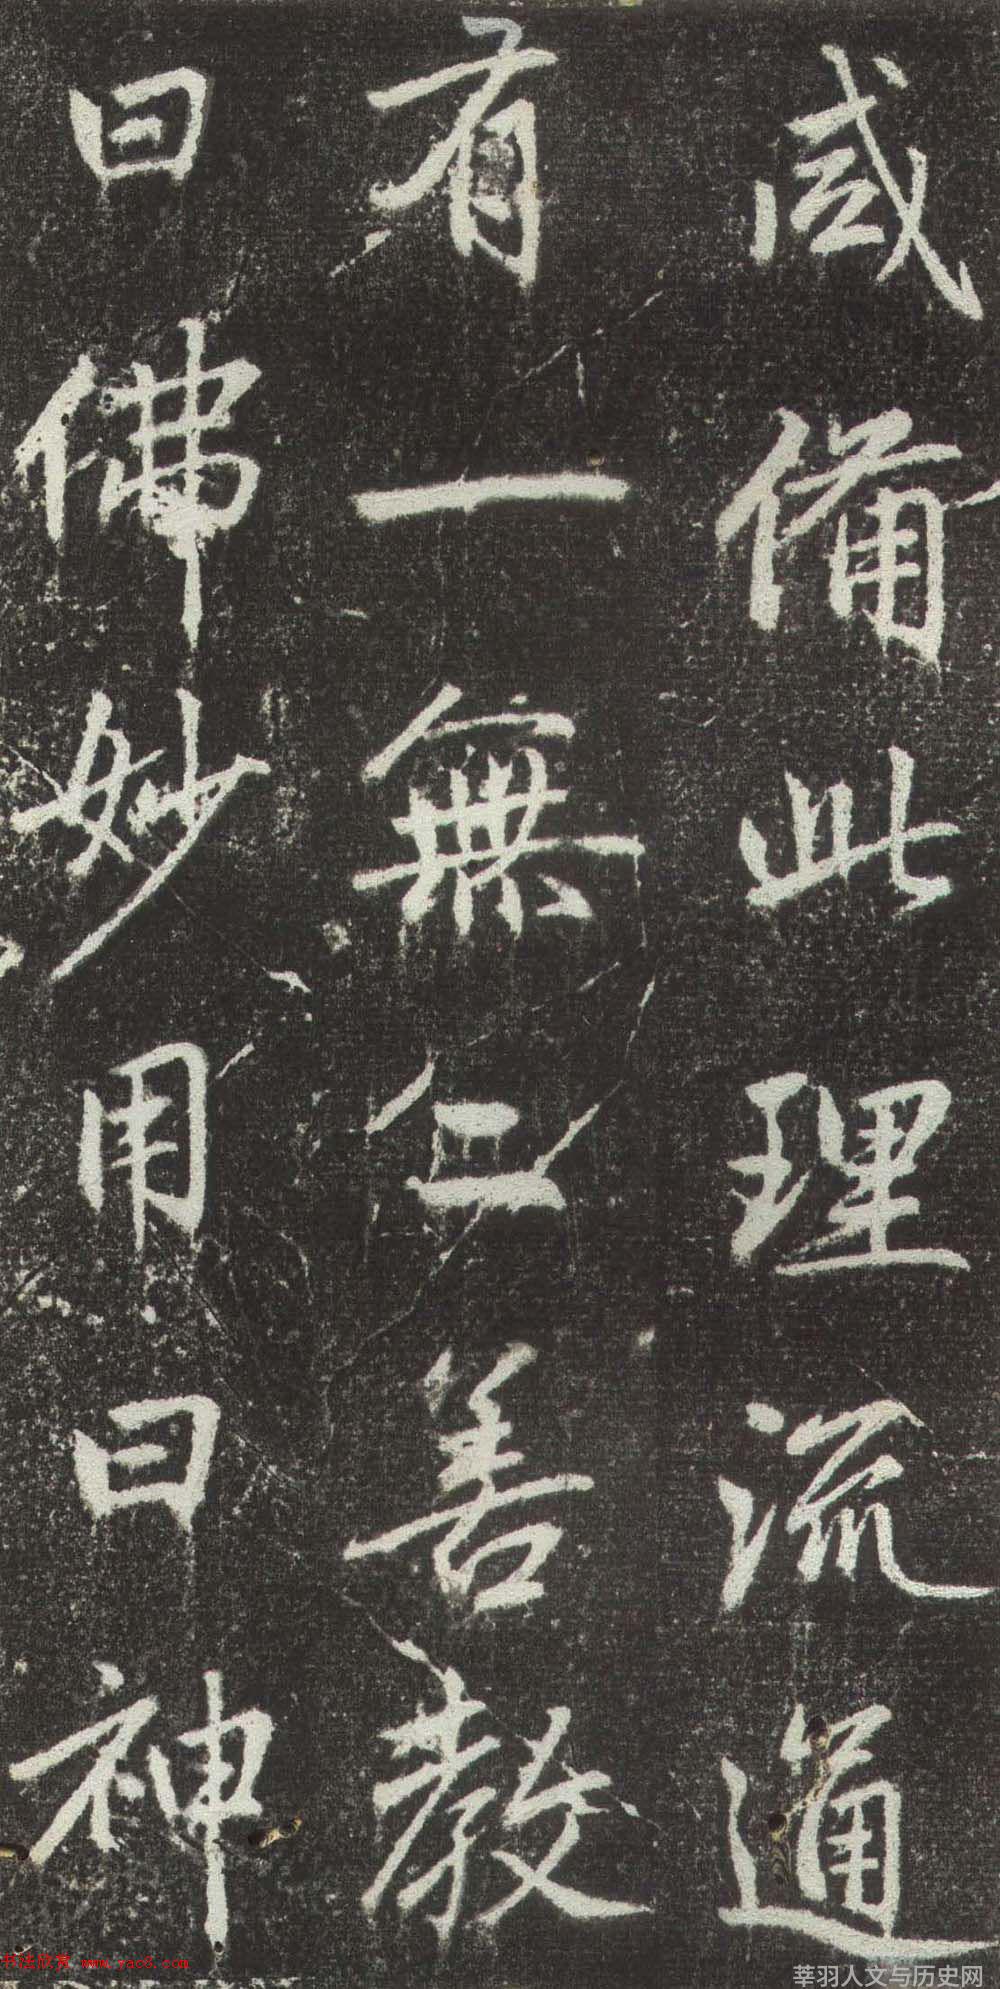 咸備此理流通
有一無二善教
曰佛妙用曰神
书法欣赏 www.yac8.com
莘羽人文与历史网